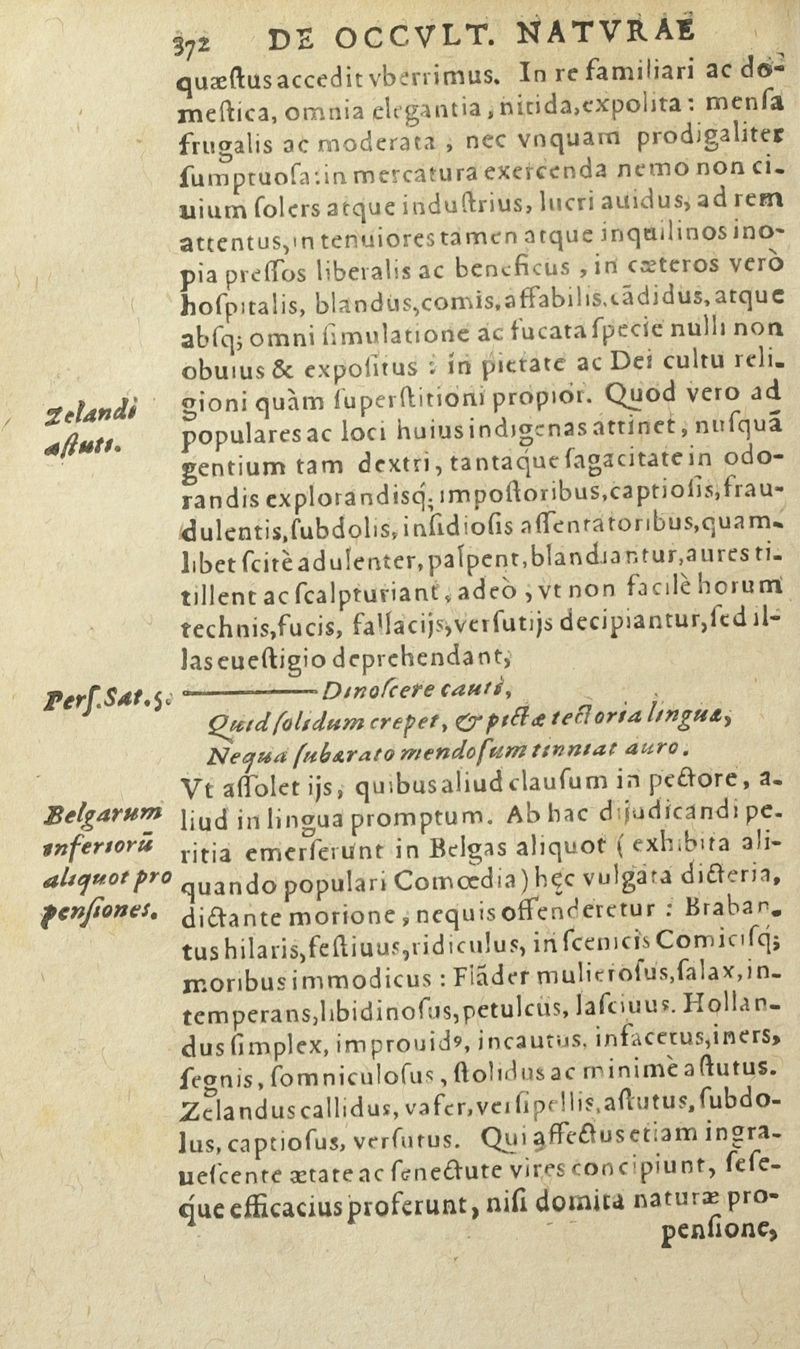 372 DE OCCVLT. NATVRAE
quæſtus accedit vberrimus. In re familiari ac do-
meſtica, omnia elegantia, nitida, expolita: menſa
frugalis ac moderata, nec vnquam prodigaliter
ſumptuoſa: in mercatura exercenda nemo non ci-
uium ſolers atque induſtrius, lucri auidus, ad rem
attentus, in tenuiores tamen atque inquilinos ino-
pia preſſos liberalis ac beneficus, in cæteros verò
hoſpitalis, blandus, comis, affabilis, cãdidus, atque
abſq; omni ſimulatione ac fucata ſpecie nulli non
obuius & expoſitus: in pietate ac Dei cultu reli-
gioni quàm ſuperſtitioni propior. Quod vero ad
Zelandi
aſtuti.
populares ac loci huius indigenas attinet, nuſquã
gentium tam dextri, tantaque ſagacitate in odo-
randis explorandisq; impoſtoribus, captioſis, frau-
dulentis, ſubdolis, inſidioſis aſſentatoribus, quam-
libet ſcitè adulenter, palpent, blandiantur, aures ti-
tillent ac ſcalpturiant, adeò, vt non facilè horum
technis, fucis, fallacijs, verſutijs decipiantur, ſed il-
las eueſtigio deprehendant,
Perſ. Sat. 5.
Dinoſcere cauti,
Quid ſolidum crepet, & pictæ tectoria linguæ,
Nequa ſubærato mendoſum tinniat auro.
Vt aſſolet ijs, quibus aliud clauſum in pectore, a-
Belgarum
inferiorũ
aliquot pro
penſiones.
liud in lingua promptum. Ab hac dijudicandi pe-
ritia emerſerunt in Belgas aliquot (exhibita ali-
quando populari Comœdia) hęc vulgata dicteria,
dictante morione, nequis offenderetur: Braban-
tus hilaris, feſtiuus, ridiculus, in ſcenicis Comiciſq;
moribus immodicus: Flãder mulieroſus, ſalax, in-
temperans, libidinoſus, petulcus, laſciuus. Hollan-
dus ſimplex, improuidꝰ, incautus, infacetus, iners,
ſegnis, ſomniculoſus, ſtolidus ac minimè aſtutus.
Zelandus callidus, vafer, verſipellis, aſtutus, ſubdo-
lus, captioſus, verſutus. Qui affectus etiam ingra-
ueſcente ætate ac ſenectute vires concipiunt, ſeſe-
que efficacius proferunt, niſi domita naturæ pro-
penſione,